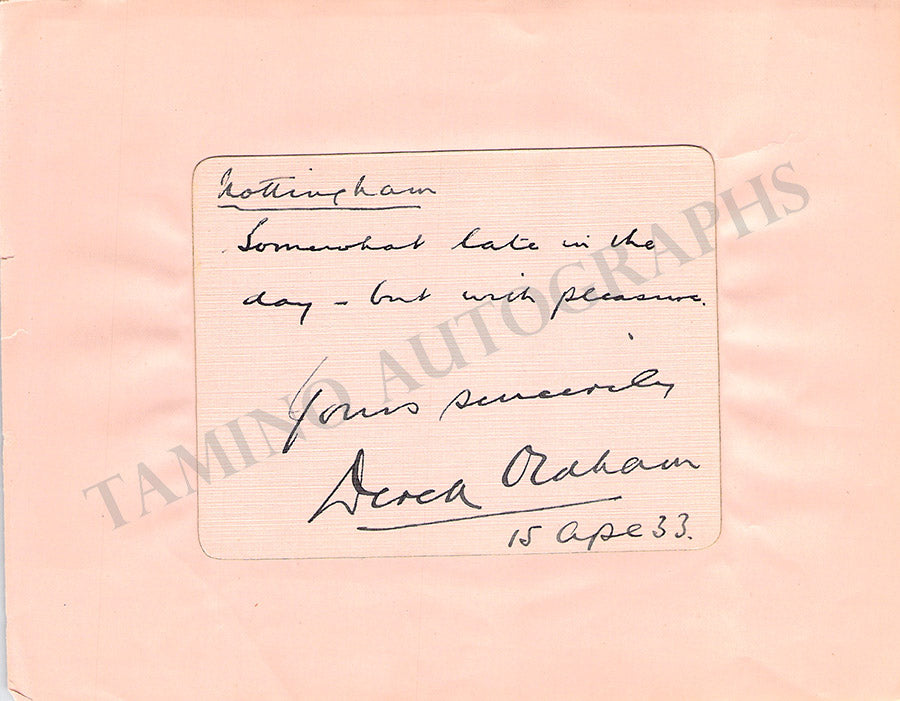 Nottingham
Somewhat late in the
day - but with pleasure.
Yours sincerely
Derek Oldham
15 Apl 33.
TAMINO AUTOGRAPHS